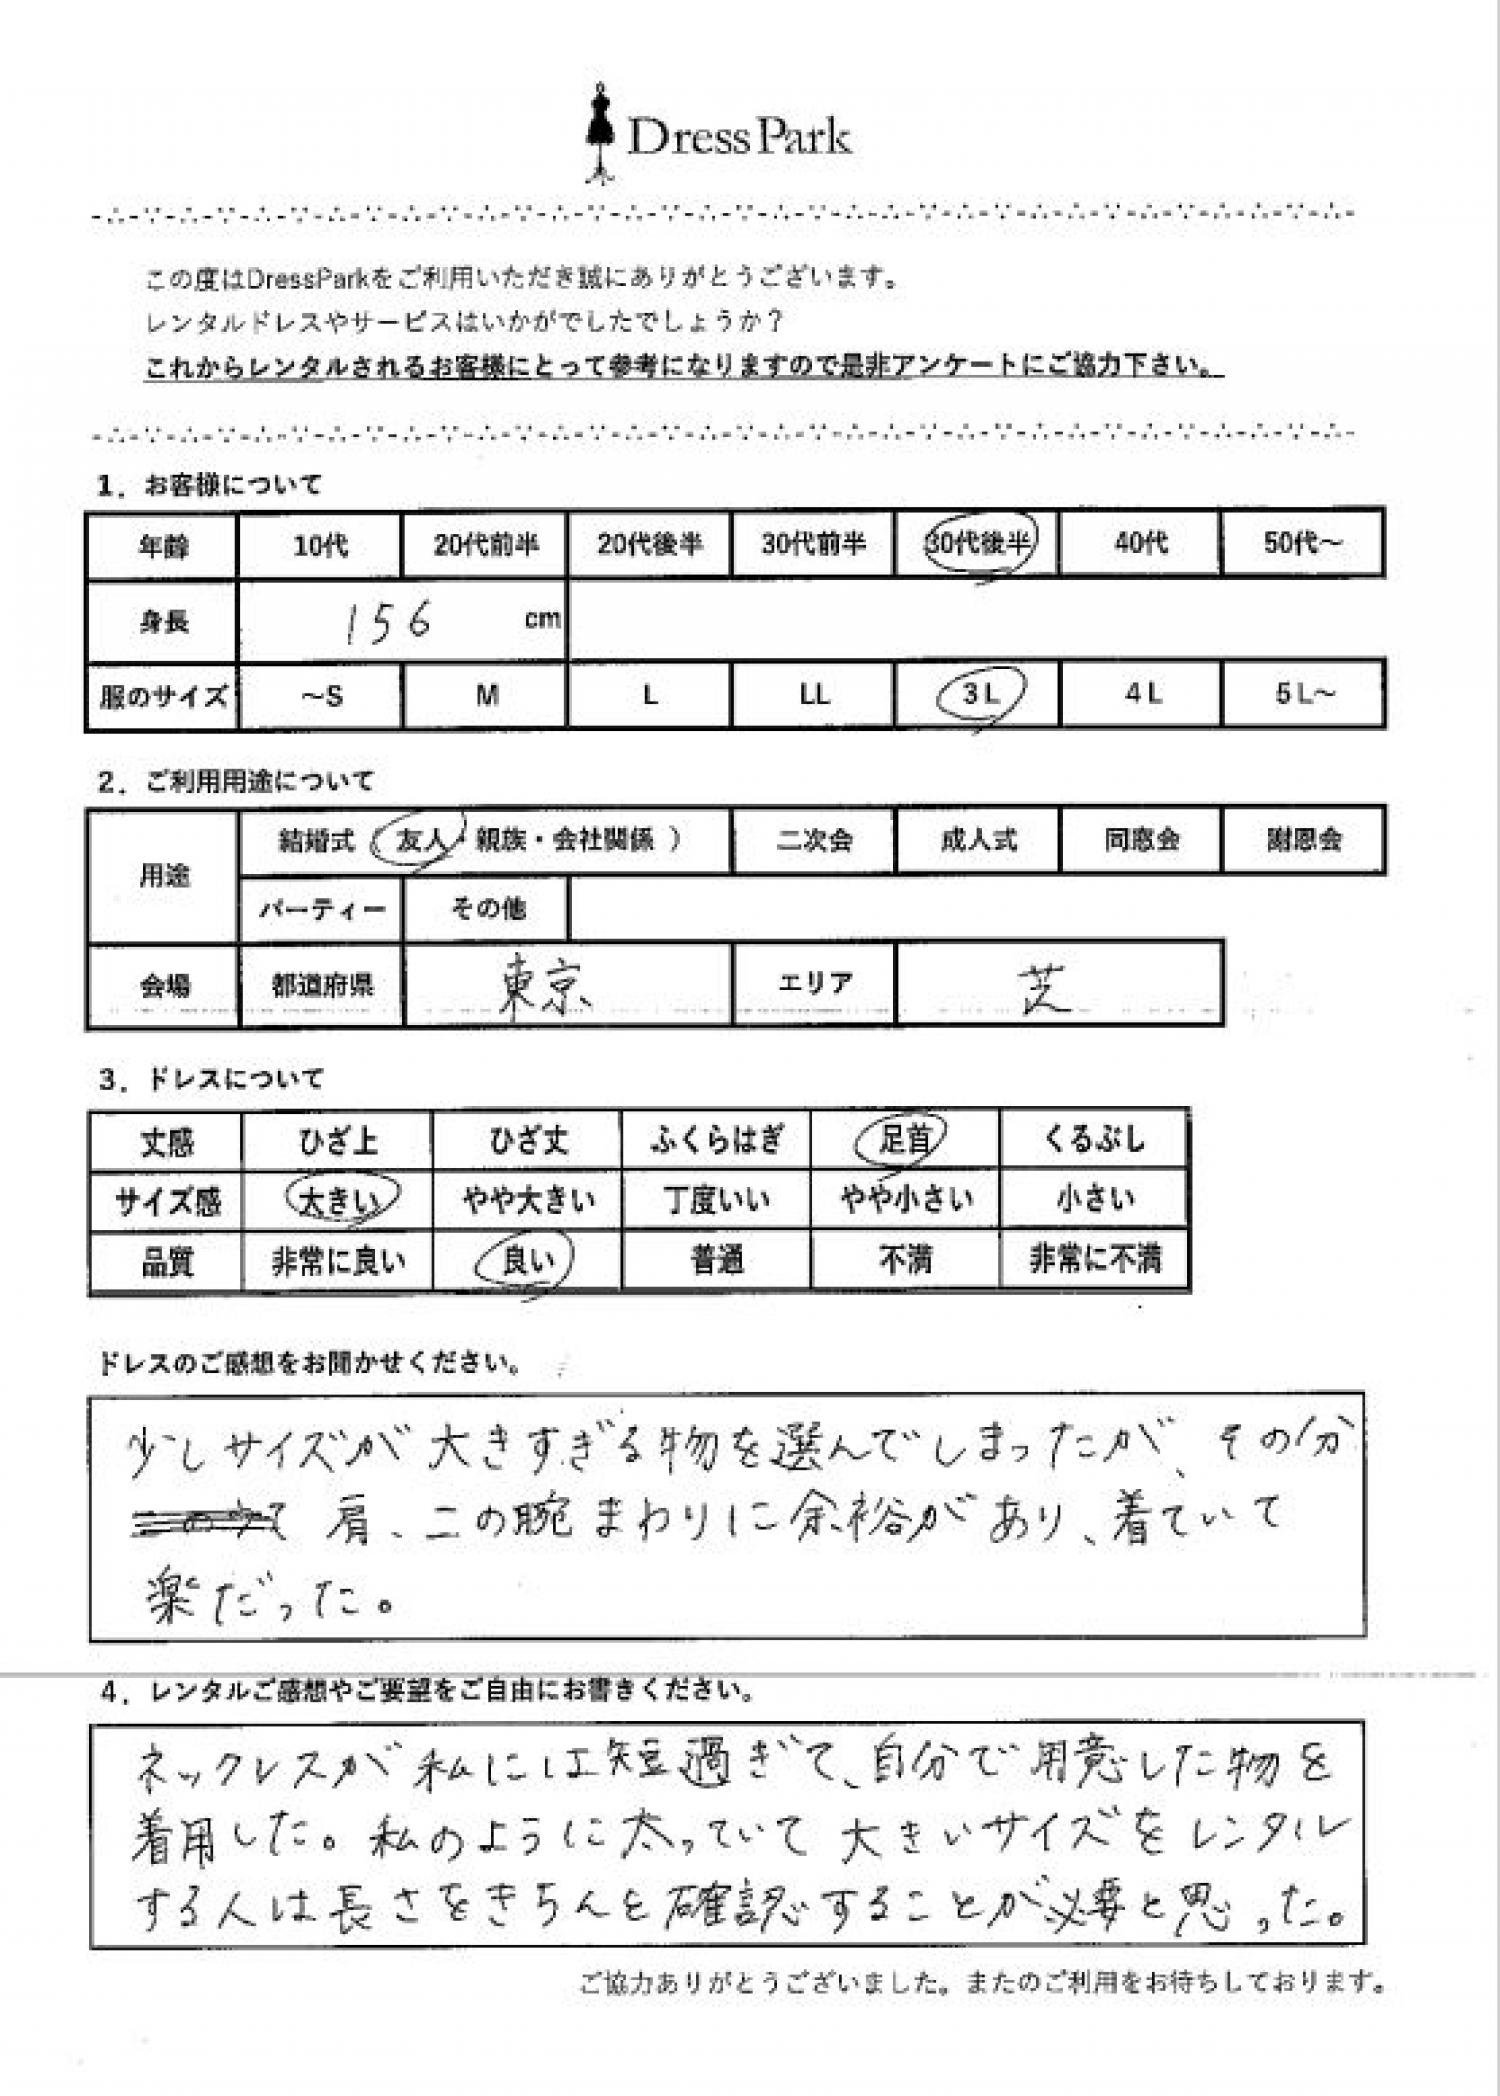 DressPark
この度はDressParkをご利用いただき誠にありがとうございます。
レンタルドレスやサービスはいかがでしたでしょうか？
これからレンタルされるお客様にとって参考になりますので是非アンケートにご協力下さい。
1．お客様について
年齢 10代 20代前半 20代後半 30代前半 30代後半 40代 50代～
身長 156 cm
服のサイズ ～S M L LL 3L 4L 5L～
2．ご利用用途について
用途 結婚式（友人・親族・会社関係） 二次会 成人式 同窓会 謝恩会
パーティー その他
会場 都道府県 東京 エリア 芝
3．ドレスについて
丈感 ひざ上 ひざ丈 ふくらはぎ 足首 くるぶし
サイズ感 大きい やや大きい 丁度いい やや小さい 小さい
品質 非常に良い 良い 普通 不満 非常に不満
ドレスのご感想をお聞かせください。
少しサイズが大きすぎる物を選んでしまったが、その分
肩、二の腕まわりに余裕があり、着ていて
楽だった。
4．レンタルご感想やご要望をご自由にお書きください。
ネックレスが私には短過ぎて、自分で用意した物を
着用した。私のように太っていて大きいサイズをレンタル
する人は長さをきちんと確認することが必要と思った。
ご協力ありがとうございました。またのご利用をお待ちしております。